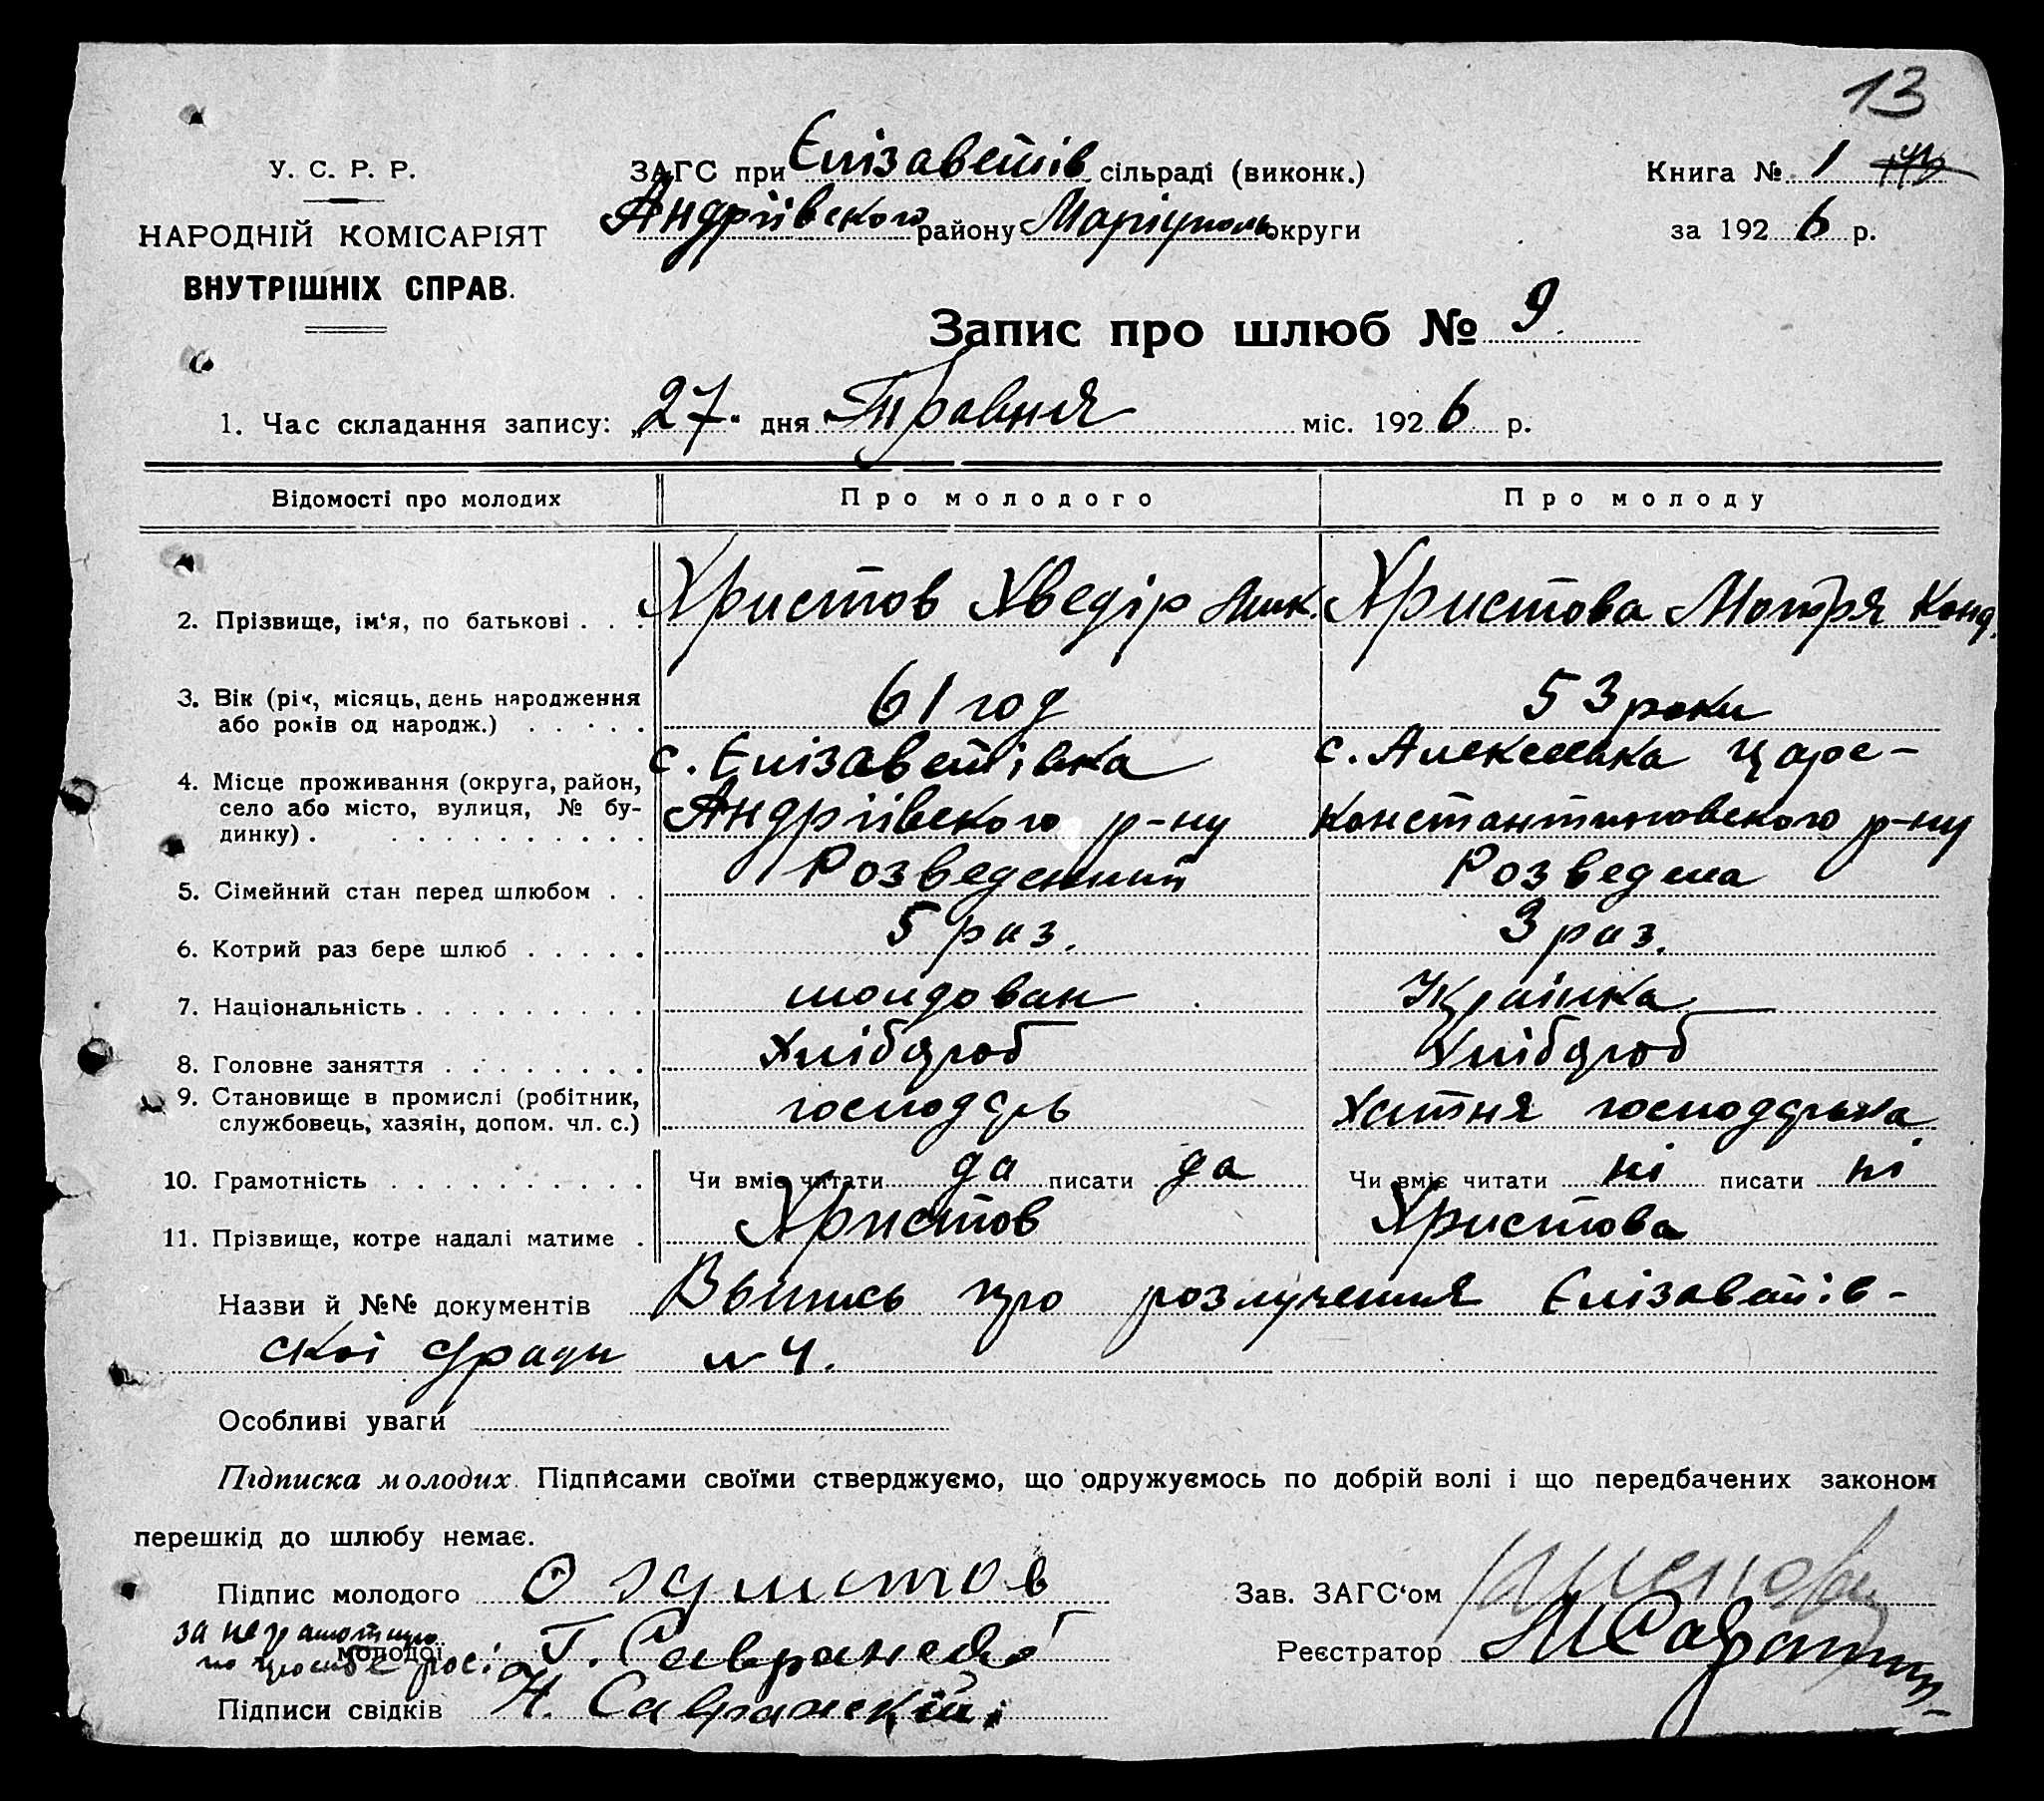 13
У. С. Р. Р.
НАРОДНІЙ КОМІСАРІЯТ
ВНУТРІШНІХ СПРАВ.
ЗАГС при Єлізаветів сільраді (виконк.)
Андріівского району Маріуполь округи
Книга № 1
за 1926 р.
Запис про шлюб № 9
1. Час складання запису: „27" дня Травня міс. 1926 р.
Відомості про молодих
Про молодого
Про молоду
2. Прізвище, ім'я, по батькові . . .
Христов Хведір Мик.
Христова Мотря Конд.
3. Вік (рік, місяць, день народження
або років од народж.) . . . . .
61 год
53 роки
4. Місце проживання (округа, район,
село або місто, вулиця, № бу-
динку) . . . . . . . . . .
с. Єлізаветівка
Андріівского р-ну
с. Алексеевка царе-
константиновского р-ну
5. Сімейний стан перед шлюбом . .
Розведенний
Розведена
6. Котрий раз бере шлюб . . . . .
5 раз.
3 раз.
7. Національність . . . . . . . . .
молдован
Украінка
8. Головне заняття . . . . . . . .
Хлібороб
Хлібороб
9. Становище в промислі (робітник,
службовець, хазяїн, допом. чл. с.)
господарь
Хатня господарька
10. Грамотність . . . . . . . . . .
Чи вміє читати да писати да
Чи вміє читати ні писати ні
11. Прізвище, котре надалі матиме .
Христов
Христова
Назви й №№ документів Выпись про розлучення Єлізаветів-
скоі с/ради № 4.
Особливі уваги
Підписка молодих. Підписами своїми стверджуємо, що одружуємось по добрій волі і що передбачених законом
перешкід до шлюбу немає.
Підпис молодого
Зав. ЗАГС'ом
за неграмотную
молодої Г. Савранский
Реєстратор
Підписи свідків Н. Савранский